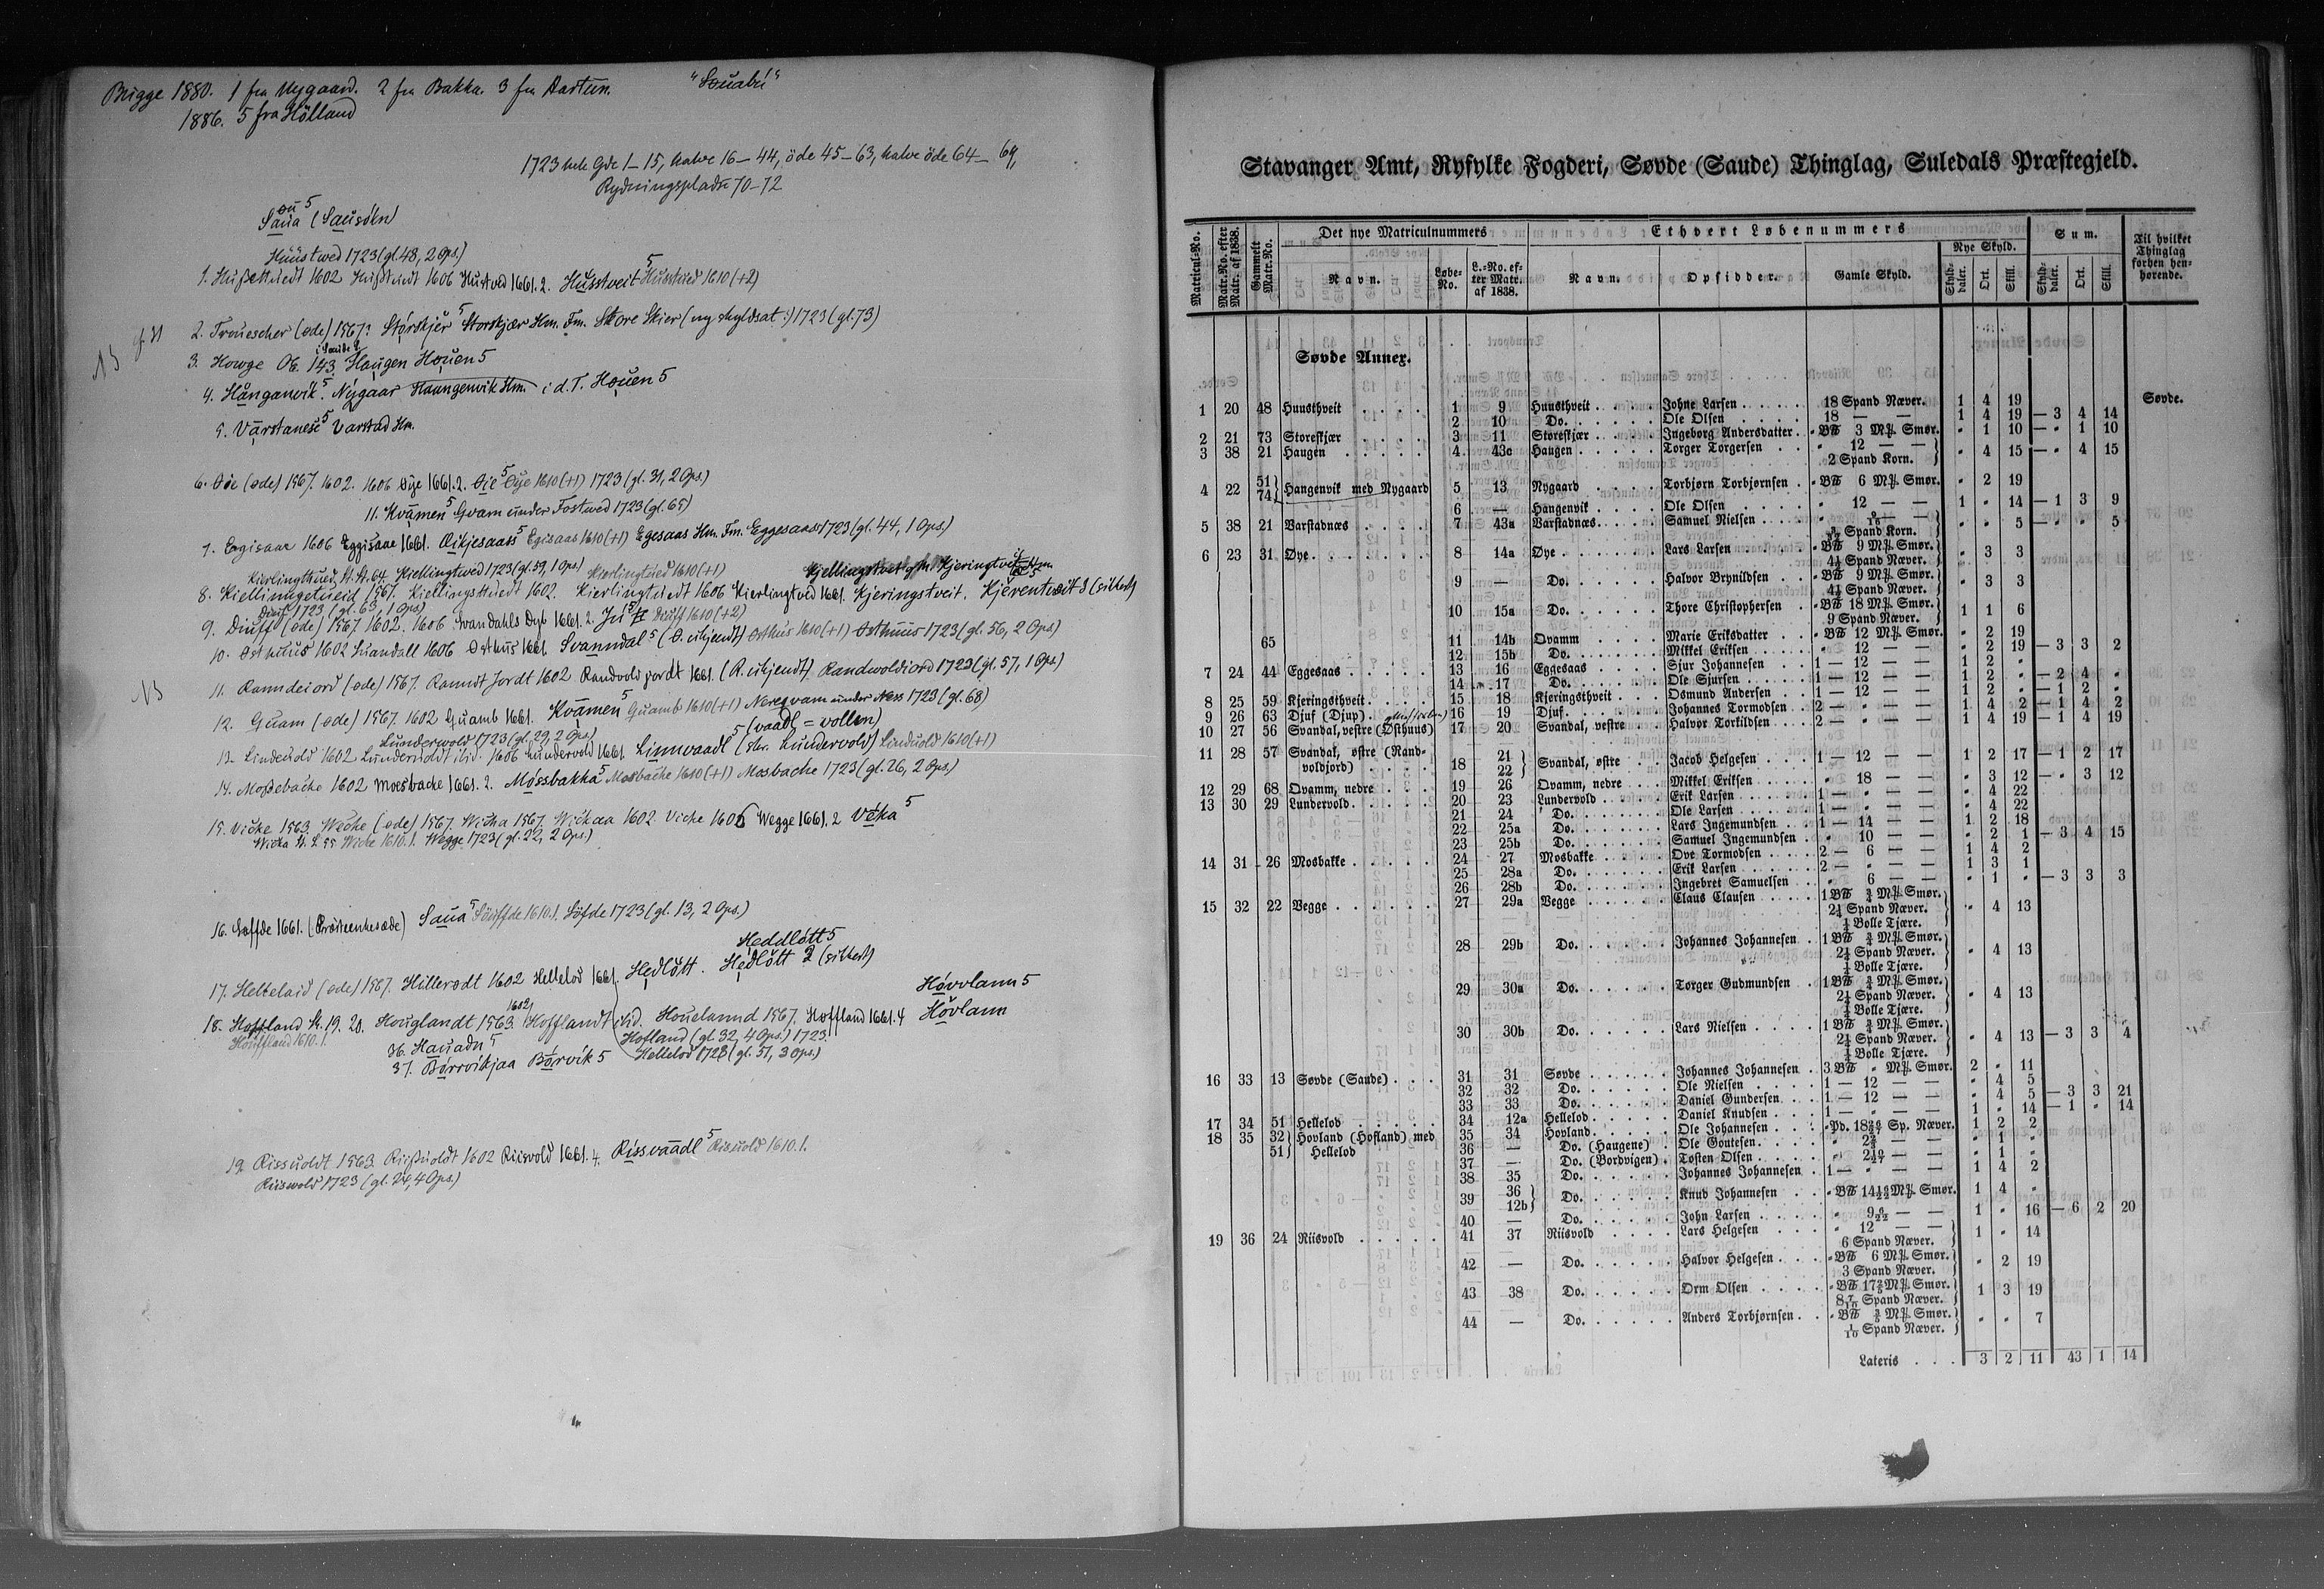 Brigge 1880. 1 fra Nygaard. 2 fra Bakka. 3 fra Aartun. "Souabú"
1886. 5 fra Hölland
1723 hele Gde 1–15, halve 16–44, öde 45–63, halve öde 64–69,
Rydningspladse 70–72
ou 5
Saua (Sausókn)
Huustwed 1723 (gl. 48, 2 Ops.)
1. 1602 1606 Hustved 1661.2. Husstveit 5 1610 (+2)
2. Trouescher (øde) 1567? Storskjer 5 Storskjær Hm. Fm. Store Skier (ny skyldsat:) 1723 (gl. 73)
3. Howge OE. 143. Haugen Houen 5
4. Hånganvik 5. Nygaar Haangenvik Hm. i d. T. Houen 5
5. Varstanese 5 Varstad Hm.
6. Øie (øde) 1567. 1602. 1606 Øye 1661.2. Øie 5 Øije 1610 (+1) 1723 (gl. 31, 2 Ops.)
11. Kvāmen 5 Qvam under Fostwed 1723 (gl. 65)
7. Egisaar 1606 Eggisaae 1661. Eikjesaas 5 Egisaas 1610 (+1) Egesaas Hm. Fm. Eggesaas 1723 (gl. 44, 1 Ops.)
Kiellingtwed 1723 (gl. 59, 1 Ops) Kierlingtued 1610 (+1)
8. Kiellinngetueid 1567. Kiellingsttuedt 1602. 1606 Kierlingtved 1661. Kjeringstveit. Kjerentveit 2 (sikkert)
Diuf 1723 (gl. 63, 1 Ops)
9. Diuff (øde) 1567. 1602. 1606. Svandahls Dyb 1661.2. Diuff 1610 (+2)
10. Osthuus 1602 Suandall 1606 Osthus 1661. Svanndal 5 (O. ukjendt) Osthus 1610 (+1) Osthuus 1723 (gl. 56, 2 Ops)
11. Ranndeiord (øde) 1567. Ranndt Jordt 1602 Randvold jordt 1661. (R. ukjendt) Randwoldiord 1723 (gl. 57, 1 Ops)
12. Guam (øde) 1567. 1602 Quamb 1661. Kvāmen 5 Guamb 1610 (+1) Nereqvam under Næss 1723 (gl. 68)
Lunderwold 1723 (gl. 29, 2 Ops) 5 (vaadl = vollen)
13. Linderold 1602 Lunderuoldt ibid. 1606 Lundervold 1661. Linnvaadl (skr. Lundervold) Linduold 1610 (+1)
14. Moßebacke 1602 Mosbacke 1661.2. Mossbakka 5 Mosbache 1610 (+1) Mosbache 1723 (gl. 26, 2 Ops.)
15. Vicke 1563. Wecke (øde) 1567. Wicka 1567. Wickaa 1602. Viche 1606 Wegge 1661.2 Véka 5
Wicka St. S. 55 Wicke 1610.1. Wegge 1723 (gl. 22, 2 Ops.)
16. Soffde 1661. (Præsteenkesæde) Saua 5 Söuffde 1610.1. Söfde 1723 (gl. 13, 2 Ops.)
Heddlótt 5
17. Heltelaid (øde) 1567. Hillerodt 1602 Hellelod 1661. Hedlótt. Hedlótt 2 (sikkert)
Hóvvlann 5
18. Hoffland St. 19. 20. Houglandt 1563. Hofflandt 1602 ibid. Houelannd 1567. Hoffland 1661.4 Hóvlann
Houffland 1610.1.
36. Hauadn 5 Hofland (gl. 32, 4 Ops.) 1723.
37. Børrvikjaa Børvik 5 Hellelod 1723 (gl. 51, 3 Ops.)
19. Rissuoldt 1563. Rißuoldt 1602 Riisvold 1661.4. Rissvaadl 5 Risuold 1610.1.
Riiswold 1723 (gl. 24, 4 Ops.)
Stavanger Amt, Ryfylke Fogderi, Søvde (Saude) Thinglag, Suledals Præstegjeld.
Matricul-No. Matr.No. efter Matr. af 1838. Gammelt Matr.No. Det nye Matriculnummers Ethvert Løbenummers Sum. Til hvilket Thinglag forhen henhørende.
Navn. Løbe-No. L.-No. efter Matr. af 1838. Navn. Opsidder. Gamle Skyld. Nye Skyld. Skylddaler. Ort. Skill. Skylddaler. Ort. Skill.
Søvde Annex.
1 20 48 Huusthveit 1 9 Huusthveit Johne Larsen 18 Spand Næver. 1 4 19 Søvde.
2 10 Do. Ole Olsen 18 — — 1 4 19 — 3 4 14
2 21 73 Storeskjær 3 11 Storeskjær Ingeborg Andersdatter " B℔ 3 M℔ Smør. " 1 10 — " 1 10
3 38 21 Haugen 4 43c Haugen Torger Torgersen " 12 — — " 4 15 — " 4 15
2 Spand Korn.
4 22 51 74 Hangenvik med Nygaard 5 13 Nygaard Torbjørn Torbjørnsen " B℔ 6 M℔ Smør. " 2 19
6 — Hangenvik Ole Olsen " 12 — — 1 " 14 — 1 3 9
5 38 21 Varstadnæs 7 43a Varstadnæs Samuel Nielsen " " 5 — " " 5
Spand Korn.
6 23 31 Øye 8 14a Øye Lars Larsen " B℔ 9 M℔ Smør. " 3 3
4½ Spand Næver.
9 — Do. Halvor Brynildsen " B℔ 9 M℔ Smør. " 3 3
4½ Spand Næver.
10 15a Do. Thore Christophersen " B℔ 18 M℔ Smør. 1 1 6
9 Spand Næver.
65 11 14b Qvamm Marie Eriksdatter " B℔ 12 M℔ Smør. " 2 19
12 15b Do. Mikkel Eriksen " 12 — — " 2 19 — 3 3 2
7 24 44 Eggesaas 13 16 Eggesaas Sjur Johannesen 1 — 12 — — 1 2 "
14 17 Do. Ole Sjursen 1 — 12 — — 1 2 " — 2 4 "
8 25 59 Kjeringsthveit 15 18 Kjeringsthveit Osmund Andersen 1 — 12 — — 1 2 " — 1 2 "
9 26 63 Djuf (Djup) 16 19 Djuf Johannes Tormodsen 2 — " — — 1 4 2 — 1 4 2
10 27 56 Svandal, vestre (Østhuus) 17 20 Svandal, vestre Halvor Torkildsen 2 — " — — 1 4 19 — 1 4 19
11 28 57 Svandal, østre (Randvoldjord) 18 21 22 Svandal, østre Jacob Helgesen 1 — 12 — — 1 2 17 — 1 2 17
12 29 68 Qvamm, nedre 19 26 Qvamm, nedre Mikkel Eriksen " 18 — — " 3 12 — " 3 12
13 30 29 Lundervold 20 23 Lundervold Erik Larsen 1 — " — — " 4 22
21 24 Do. Ole Larsen 1 — " — — " 4 22
22 25a Do. Lars Ingemundsen 1 — 14 — — 1 2 18
23 25b Do. Samuel Ingemundsen " 10 — — " 2 1 — 3 4 15
14 31 26 Mosbakke 24 27 Mosbakke Ove Tormodsen 2 — 6 — — 1 4 2
25 28a Do. Erik Larsen 2 — " — — 1 3 1
26 28b Do. Ingebret Samuelsen " 6 — — " 1 " — 3 3 3
15 32 22 Vegge 27 29a Vegge Claus Clausen 1 B℔ ¾ M℔ Smør. " 4 13
2¼ Spand Næver.
¼ Bolle Tjære.
28 29b Do. Johannes Johannesen 1 B℔ ¾ M℔ Smør. " 4 13
2¼ Spand Næver.
¼ Bolle Tjære.
29 30a Do. Torger Gudmundsen 1 B℔ ¾ M℔ Smør. " 4 13
2¼ Spand Næver.
¼ Bolle Tjære.
30 30b Do. Lars Nielsen 1 B℔ ¾ M℔ Smør. " 4 13 — 3 3 4
2¼ Spand Næver.
¼ Bolle Tjære.
16 33 13 Søvde (Saude) 31 31 Søvde Johannes Johannesen 3 B℔ " M℔ Smør. 2 " 11
32 32 Do. Ole Nielsen 1 — 12 — — " 4 5
33 33 Do. Daniel Gundersen 1 — 12 — — " 4 5 — 3 3 21
17 34 51 Hellelod 34 12a Hellelod Daniel Knudsen 1 — " — — 1 " 14 — 1 " 14
18 35 32 51 Hovland (Hofland) med Hellelod 35 34 Hovland Ole Johannesen " Pd. Sp. Næver. 1 2 2
36 — Do. (Haugene) Ole Goutesen " — — " 1 "
37 — Do. (Bordvigen) Tosten Olsen " — — " 1 "
38 35 Do. Johannes Johannesen 1 — " — — 1 4 2
39 36 12b Do. Knud Johannesen " B℔ M℔ Smør. 1 4 "
40 — Do. John Larsen " — — 1 " 16 — 6 2 20
19 36 24 Riisvold 41 37 Riisvold Lars Helgesen " 12 — — 1 " 14
6 Spand Næver.
42 — Do. Halvor Helgesen " B℔ 6 M℔ Smør. " 2 19
3 Spand Næver.
43 38 Do. Orm Olsen " B℔ M℔ Smør. 1 3 19
8 7/10 Spand Næver.
44 — Do. Anders Torbjørnsen " B℔ M℔ Smør. " " 7
1/10 Spand Næver.
Lateris 3 2 11 43 1 14